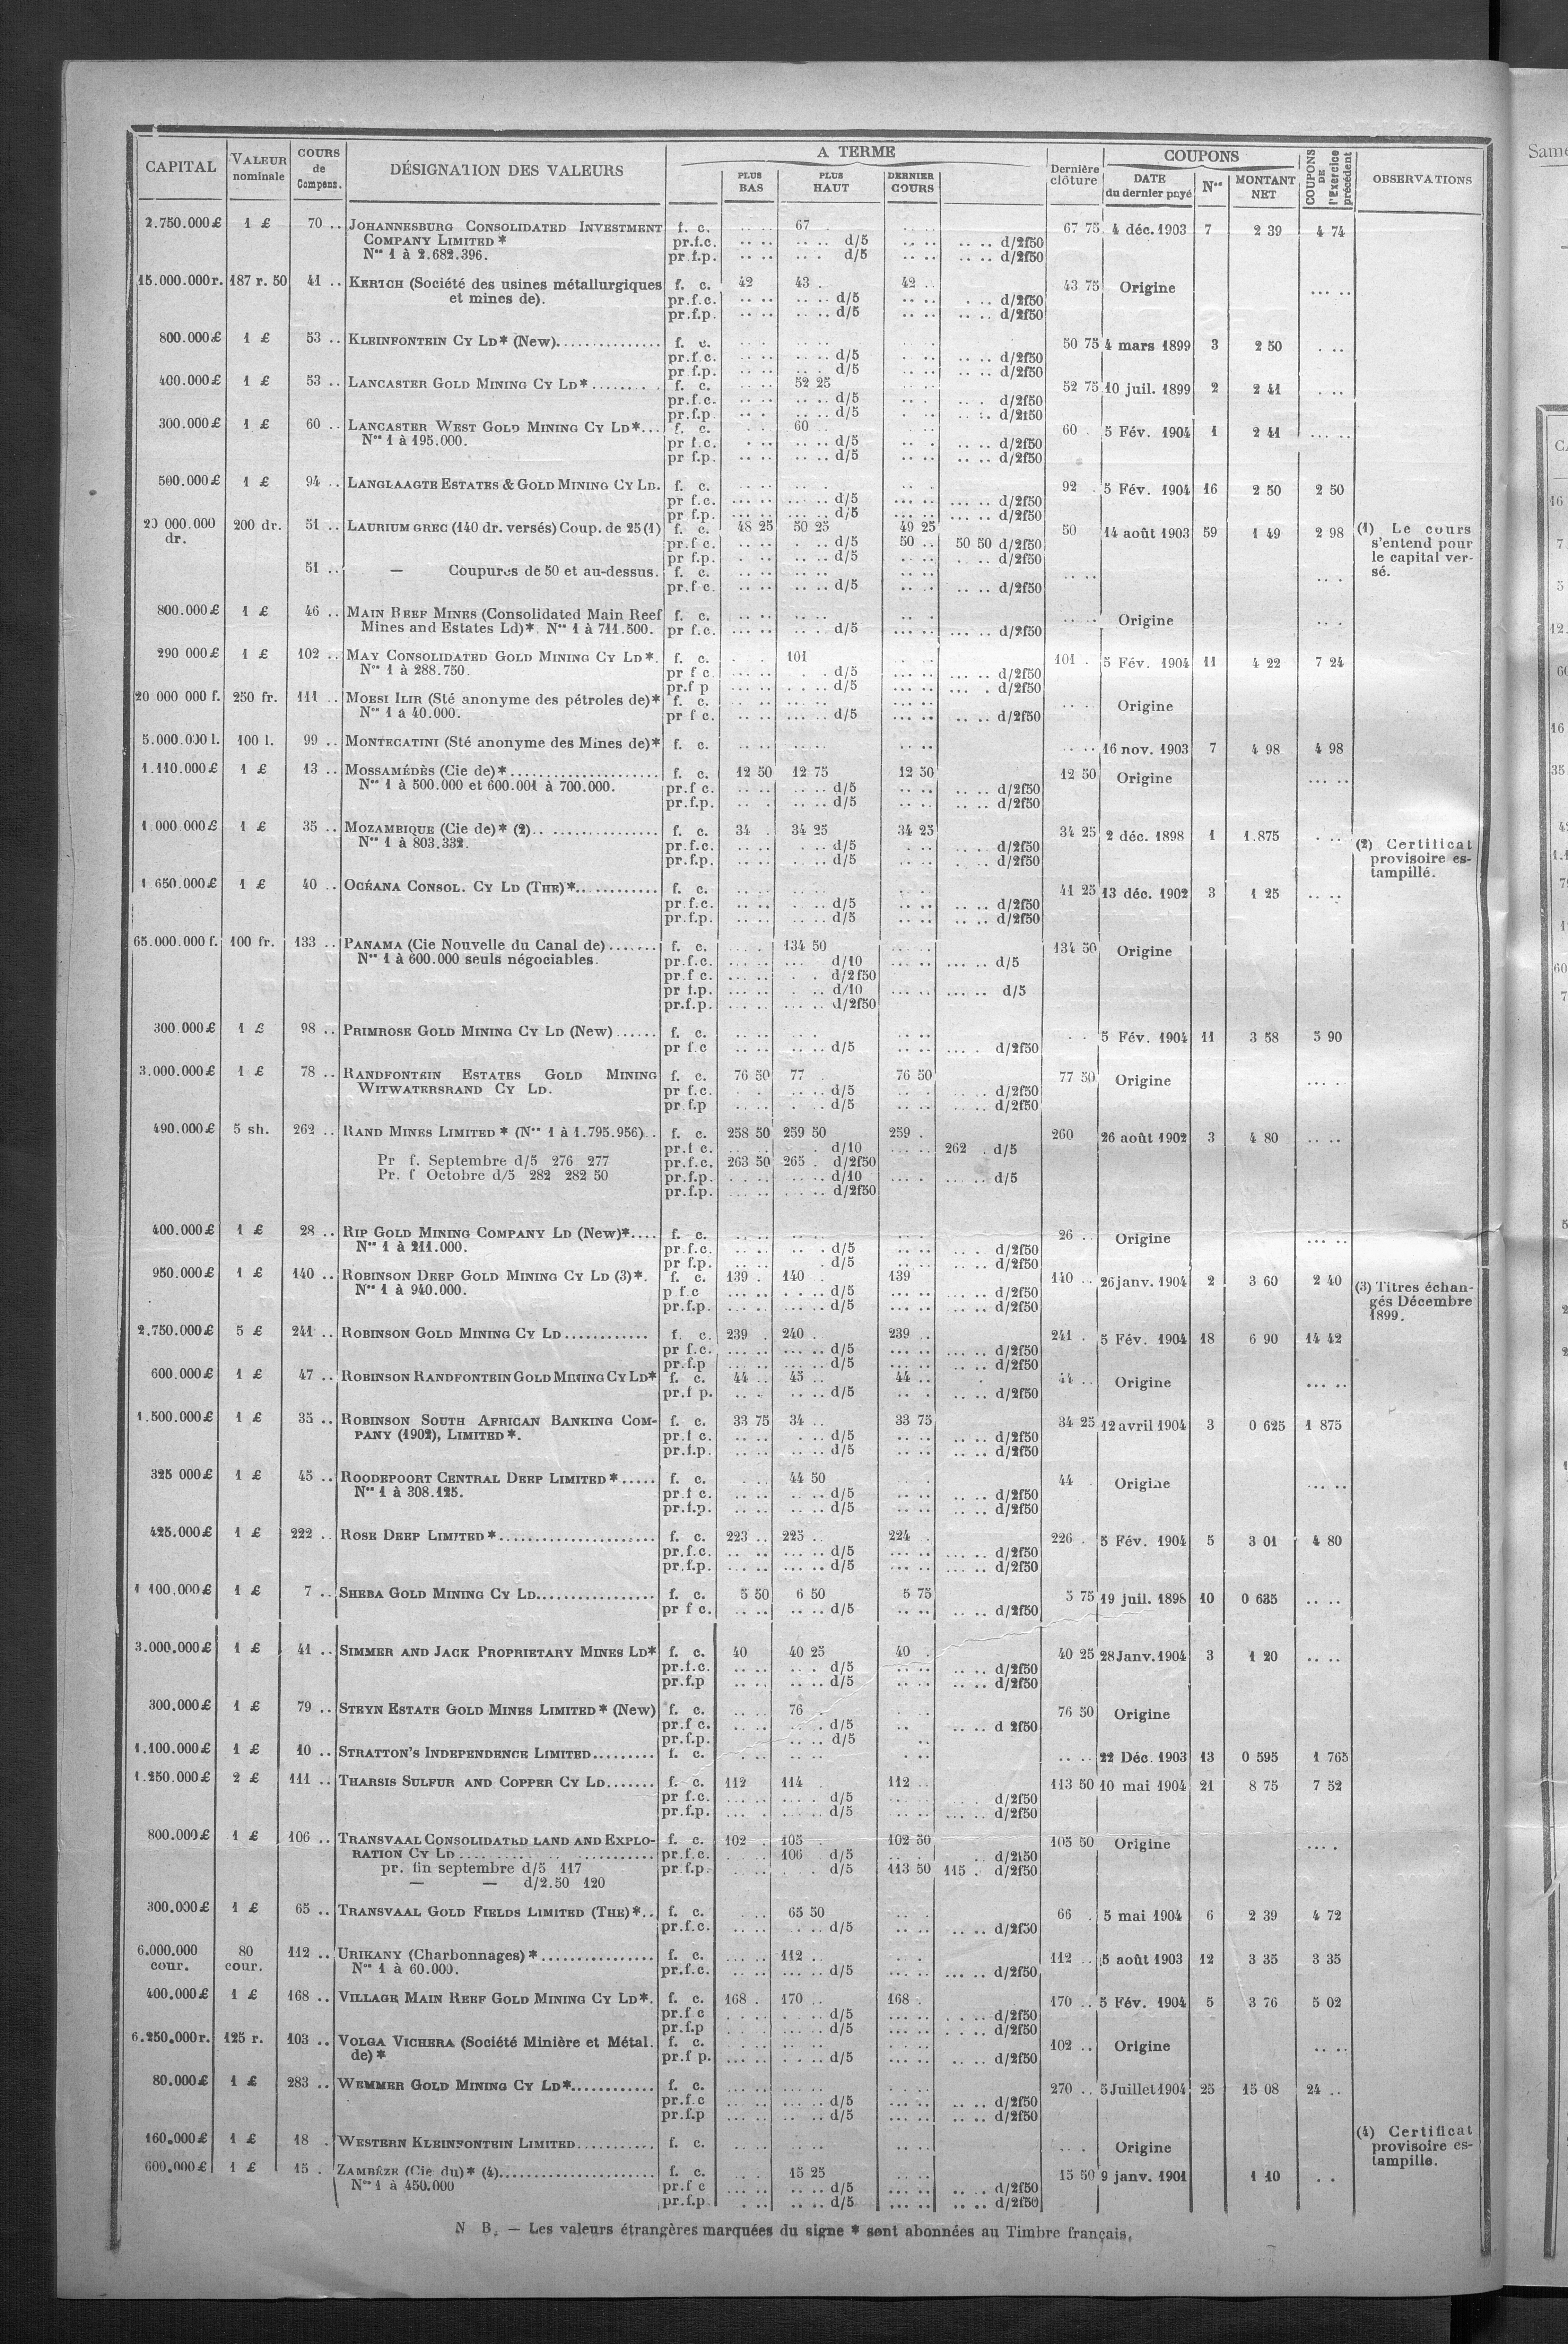 CAPITAL VALEUR nominale COURS de Compens. DÉSIGNATION DES VALEURS A TERME PLUS BAS PLUS HAUT DERNIER COURS Dernière clôture COUPONS DATE du dernier payé Nos MONTANT NET COUPONS DE l'Exercice précédent OBSERVATIONS
2.750.000£ 1 £ 70 .. JOHANNESBURG CONSOLIDATED INVESTMENT f. c. 67 67 75 4 déc. 1903 7 2 39 4 74
COMPANY LIMITED * pr.f.c. d/5 d/2f50
Nos 1 à 2.682.396. pr f.p. d/5 d/2f50
15.000.000r. 187 r. 50 41 .. KERTCH (Société des usines métallurgiques f. c. 42 43 42 43 75 Origine
et mines de). pr.f.c. d/5 d/2f50
pr.f.p. d/5 d/2f50
800.000£ 1 £ 53 .. KLEINFONTEIN CY LD* (New) f. c. 50 75 4 mars 1899 3 2 50
pr.f.c. d/5 d/2f50
pr f.p. d/5 d/2f50
400.000£ 1 £ 53 .. LANCASTER GOLD MINING CY LD* f. c. 52 25 52 75 10 juil. 1899 2 2 41
pr.f.c. d/5 d/2f50
pr.f.p d/5 d/2f50
300.000£ 1 £ 60 .. LANCASTER WEST GOLD MINING CY LD* f. c. 60 60 5 Fév. 1904 1 2 41
Nos 1 à 195.000. pr f.c. d/5 d/2f50
pr f.p. d/5 d/2f50
500.000£ 1 £ 94 .. LANGLAAGTE ESTATES & GOLD MINING CY LD. f. c. 92 5 Fév. 1904 16 2 50 2 50
pr f.c. d/5 d/2f50
pr f.p. d/5 d/2f50
20 000.000 dr. 200 dr. 51 .. LAURIUM GREC (140 dr. versés) Coup. de 25 (1) f. c. 48 25 50 25 49 25 50 14 août 1903 59 1 49 2 98 (1) Le cours s'entend pour le capital versé.
pr.f c. d/5 50 .. 50 50 d/2f50
pr f.p. d/5 d/2f50
51 .. — Coupures de 50 et au-dessus. f. c.
pr.f c. d/5 d/2f50
800.000£ 1 £ 46 .. MAIN REEF MINES (Consolidated Main Reef f. c. Origine
Mines and Estates Ld)*. Nos 1 à 711.500. pr f.c. d/5 d/2f50
290 000£ 1 £ 102 .. MAY CONSOLIDATED GOLD MINING CY LD*. f. c. 101 101 5 Fév. 1904 11 4 22 7 24
Nos 1 à 288.750. pr f c. d/5 d/2f50
pr.f p d/5 d/2f50
20 000 000 f. 250 fr. 111 .. MOESI ILIR (Sté anonyme des pétroles de)* f. c. Origine
Nos 1 à 40.000. pr f c. d/5 d/2f50
5.000.000 l. 100 l. 99 .. MONTECATINI (Sté anonyme des Mines de)* f. c. 16 nov. 1903 7 4 98 4 98
1.110.000£ 1 £ 13 .. MOSSAMÉDÈS (Cie de)* f. c. 12 50 12 75 12 50 12 50 Origine
Nos 1 à 500.000 et 600.001 à 700.000. pr.f c. d/5 d/2f50
pr.f.p. d/5 d/2f50
1.000 000£ 1 £ 35 .. MOZAMBIQUE (Cie de)* (2) f. c. 34 34 25 34 25 34 25 2 déc. 1898 1 1.875 (2) Certificat provisoire estampillé.
Nos 1 à 803.332. pr.f.c. d/5 d/2f50
pr.f.p. d/5 d/2f50
1 650.000£ 1 £ 40 .. OCÉANA CONSOL. CY LD (THE)* f. c. 41 25 13 déc. 1902 3 1 25
pr.f.c. d/5 d/2f50
pr.f.p. d/5 d/2f50
65.000.000 f. 100 fr. 133 .. PANAMA (Cie Nouvelle du Canal de) f. c. 134 50 134 50 Origine
Nos 1 à 600.000 seuls négociables. pr.f.c. d/10 d/5
pr.f c. d/2f50
pr f.p. d/10 d/5
pr.f.p. d/2f50
300.000£ 1 £ 98 .. PRIMROSE GOLD MINING CY LD (New) f. c. 5 Fév. 1904 11 3 58 5 90
pr f.c d/5 d/2f50
3.000.000£ 1 £ 78 .. RANDFONTEIN ESTATES GOLD MINING f. c. 76 50 77 76 50 77 50 Origine
WITWATERSRAND CY LD. pr f.c. d/5 d/2f50
pr f.p d/5 d/2f50
490.000£ 5 sh. 262 .. RAND MINES LIMITED * (Nos 1 à 1.795.956) f. c. 258 50 259 50 259 260 26 août 1902 3 4 80
pr.f c. d/10 262 d/5
Pr f. Septembre d/5 276 277 pr.f.c. 263 50 265 d/2f50
Pr. f Octobre d/5 282 282 50 pr.f.p. d/10 d/5
pr.f.p. d/2f50
400.000£ 1 £ 28 .. RIP GOLD MINING COMPANY LD (New)* f. c. 26 Origine
Nos 1 à 211.000. pr f.c. d/5 d/2f50
pr f.p. d/5 d/2f50
950.000£ 1 £ 140 .. ROBINSON DEEP GOLD MINING CY LD (3)*. f. c. 139 140 139 140 26 janv. 1904 2 3 60 2 40 (3) Titres échangés Décembre 1899.
Nos 1 à 940.000. p f c d/5 d/2f50
pr.f.p. d/5 d/2f50
2.750.000£ 5 £ 241 .. ROBINSON GOLD MINING CY LD f. c. 239 240 239 241 5 Fév. 1904 18 6 90 14 42
pr f.c. d/5 d/2f50
pr.f.p d/5 d/2f50
600.000£ 1 £ 47 .. ROBINSON RANDFONTEIN GOLD MINING CY LD* f. c. 44 45 44 44 Origine
pr.f p. d/5 d/2f50
1.500.000£ 1 £ 35 .. ROBINSON SOUTH AFRICAN BANKING COM- f. c. 33 75 34 33 75 34 25 12 avril 1904 3 0 625 1 875
PANY (1902), LIMITED *. pr.f c. d/5 d/2f50
pr.f.p. d/5 d/2f50
325 000£ 1 £ 45 .. ROODEPOORT CENTRAL DEEP LIMITED * f. c. 44 50 44 Origine
Nos 1 à 308.125. pr.f c. d/5 d/2f50
pr.f.p. d/5 d/2f50
425.000£ 1 £ 222 .. ROSE DEEP LIMITED * f. c. 223 225 224 226 5 Fév. 1904 5 3 01 4 80
pr.f.c. d/5 d/2f50
pr.f.p. d/5 d/2f50
1 100.000£ 1 £ 7 .. SHEBA GOLD MINING CY LD f. c. 5 50 6 50 5 75 5 75 19 juil. 1898 10 0 635
pr f c. d/5 d/2f50
3.000.000£ 1 £ 41 .. SIMMER AND JACK PROPRIETARY MINES LD* f. c. 40 40 25 40 40 25 28 Janv. 1904 3 1 20
pr.f.c. d/5 d/2f50
pr.f.p d/5 d/2f50
300.000£ 1 £ 79 .. STEYN ESTATE GOLD MINES LIMITED * (New) f. c. 76 76 50 Origine
pr.f c. d/5 d 2f50
pr.f.p. d/5
1.100.000£ 1 £ 10 .. STRATTON'S INDEPENDENCE LIMITED f. c. 22 Déc. 1903 13 0 595 1 765
1.250.000£ 2 £ 111 .. THARSIS SULFUR AND COPPER CY LD f. c. 112 114 112 113 50 10 mai 1904 21 8 75 7 52
pr f.c. d/5 d/2f50
pr.f.p. d/5 d/2f50
800.000£ 1 £ 106 .. TRANSVAAL CONSOLIDATED LAND AND EXPLO- f. c. 102 105 102 50 105 50 Origine
RATION CY LD pr.f.c. 106 d/5 d/2f50
pr. fin septembre d/5 117 pr f.p. d/5 113 50 115 d/2f50
— — d/2.50 120
300.000£ 1 £ 65 .. TRANSVAAL GOLD FIELDS LIMITED (THE)* f. c. 65 50 66 5 mai 1904 6 2 39 4 72
pr.f.c. d/5 d/2f50
6.000.000 cour. 80 cour. 112 .. URIKANY (Charbonnages) * f. c. 112 112 5 août 1903 12 3 35 3 35
Nos 1 à 60.000. pr.f.c. d/5 d/2f50
400.000£ 1 £ 168 .. VILLAGE MAIN REEF GOLD MINING CY LD*. f. c. 168 170 168 170 5 Fév. 1904 5 3 76 5 02
pr.f c d/5 d/2f50
pr.f.p d/5 d/2f50
6.250.000r. 125 r. 103 .. VOLGA VICHERA (Société Minière et Métal. f. c. 102 Origine
de) * pr.f p. d/5 d/2f50
80.000£ 1 £ 283 .. WEMMER GOLD MINING CY LD* f. c. 270 5 Juillet 1904 25 15 08 24
pr.f.c d/5 d/2f50
pr.f.p d/5 d/2f50
160.000£ 1 £ 18 WESTERN KLEINFONTEIN LIMITED f. c. Origine (4) Certificat provisoire estampille.
600.000£ 1 £ 15 ZAMBÈZE (Cie du)* (4) f. c. 15 25 15 50 9 janv. 1901 1 10
Nos 1 à 450.000 pr.f c d/5 d/2f50
pr.f.p. d/5 d/2f50
N B. — Les valeurs étrangères marquées du signe * sont abonnées au Timbre français.